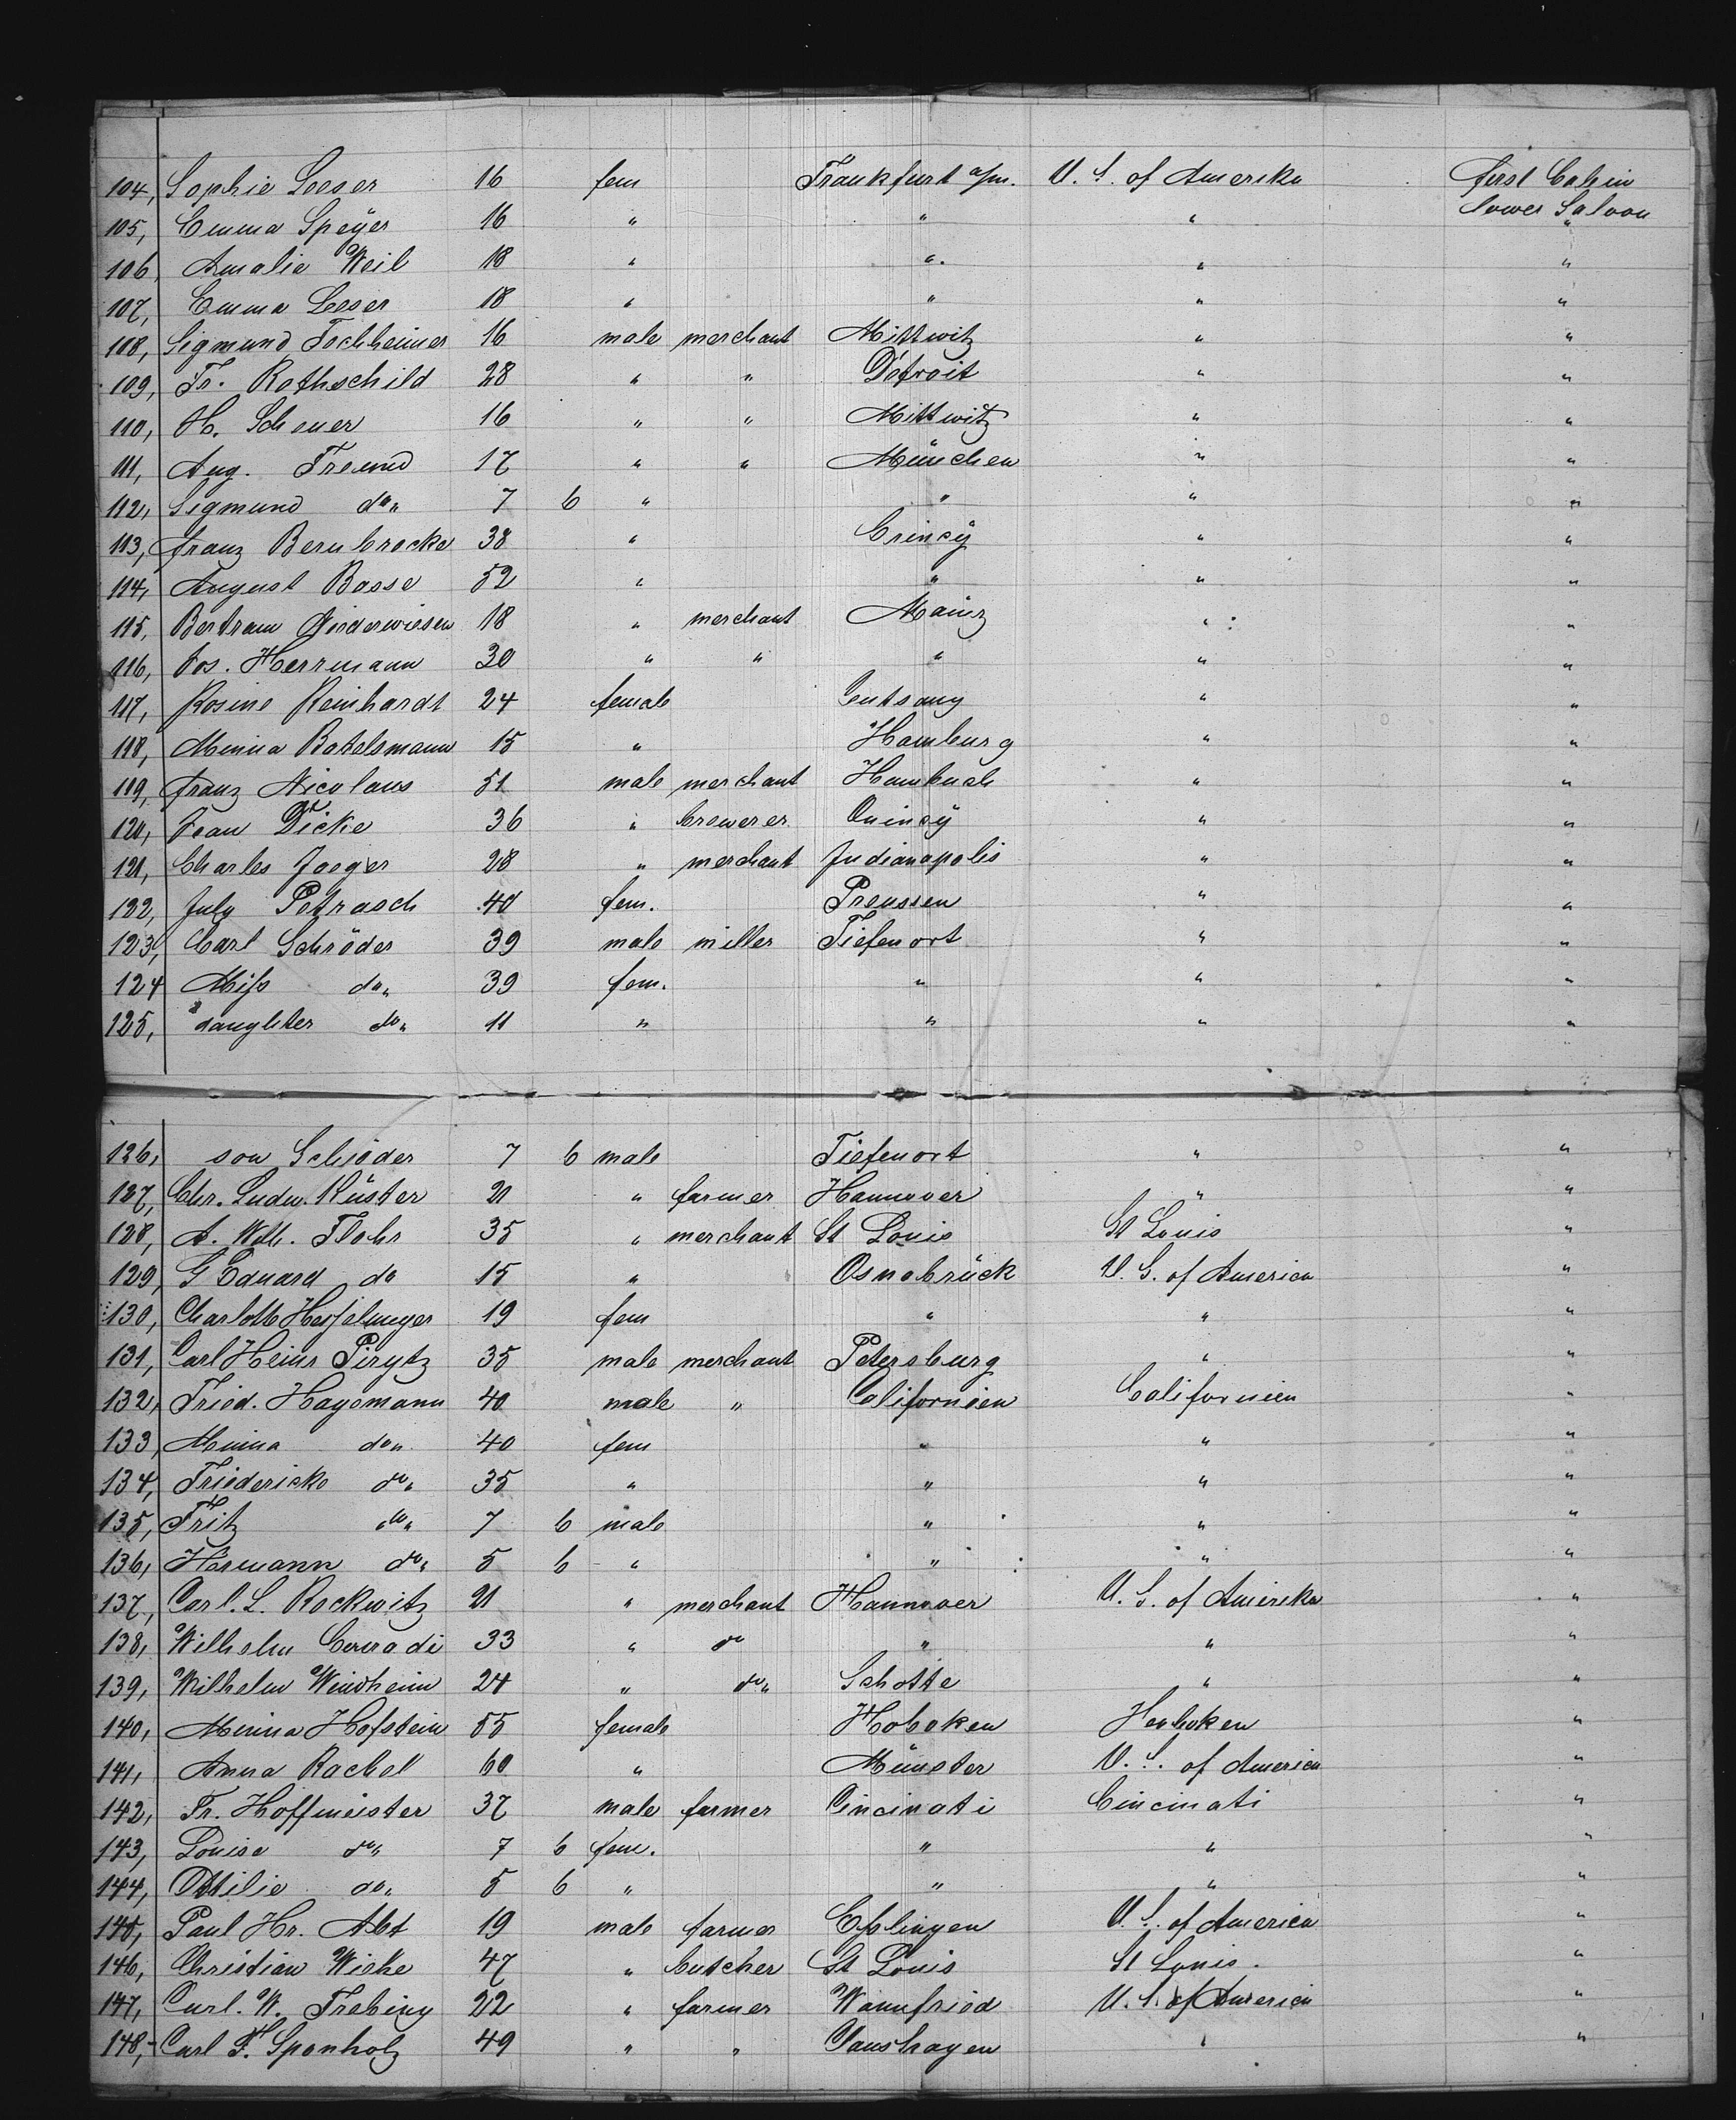 104, Sophie Leeser 16 fem Frankfurt a/m. U. S. of Amerika first Cabin
lower Saloon
105, Emma Speÿer 16 " " " "
106, Amalie Weil 18 " " " "
107, Emma Leeser 18 " " " "
108, Sigmund Fochheimer 16 male merchant Mittwitz " "
109, Fr. Rothschild 28 " " Detroit " "
110, H. Scheuer 16 " " Mittwitz " "
111, Aug. Freund 17 " " München " "
112, Sigmund do " 7 6 " " " "
113, Franz Bernbrocke 38 " " "
114, August Basse 52 " " " "
115, Bertram Niederwiesen 18 " merchant Mainz " "
116, Jos. Herrmann 30 " " " " "
117, Rosine Reinhardt 24 female " "
118, Minna Batelsmann 15 " Hamburg " "
119, Franz Nicolaus 51 male merchant " "
120, Jean Dicke 36 " brewerer Quincÿ " "
121, Charles Jaeger 28 " merchant Indianapolis " "
122, July Petrasch 40 fem. Preussen " "
123, Carl Schröder 39 male miller Tiefenort " "
124 Miss do " 39 fem. " " "
125, daughter do " 11 " " " "
126, son Schröder 7 6 male Tiefenort " "
127, Chr. Ludw. Küster 21 " farmer Hannover " "
128, A. Wilh. Flohr 35 " merchant St Louis St Louis "
129, G Eduard do 15 " Osnabrück U. S. of America "
130, Charlotte Hesselmeyer 19 fem " " "
131, Carl Heinr Pirytz 35 male merchant Petersburg " "
132, Fried. Hagemann 40 male " Californien Californien "
133, Minna do " 40 fem " " "
134, Friedericke do " 35 " " " "
135, Fritz " do " 7 6 male " " "
136, Hermann do " 5 6 " " " "
137, Carl. L. Rockwitz 21 " merchant Hannover U. S. of Amerika "
138, Wilhelm Conradi 33 " do " " "
139, Wilhelm Windheim 24 " do " Schotte " "
140, Minna Hofstein 55 female Hoboken Hoboken "
141, Anna Rachel 60 " Münster U. S. of America "
142, Fr. Hoffmeister 37 male farmer Cincinati Cincinati "
143, Louise do " 7 6 fem. " " "
144, Ottilie do " 5 6 " " " "
145, Paul Hr. Abt 19 male farmer Esslingen U. S. of America "
146, Christian Wicke 47 " butcher St Louis St Louis. "
147, Carl. W. Trebing 22 " farmer Wannfried U. S. of America "
148, Carl F. Sponholz 49 " " " "